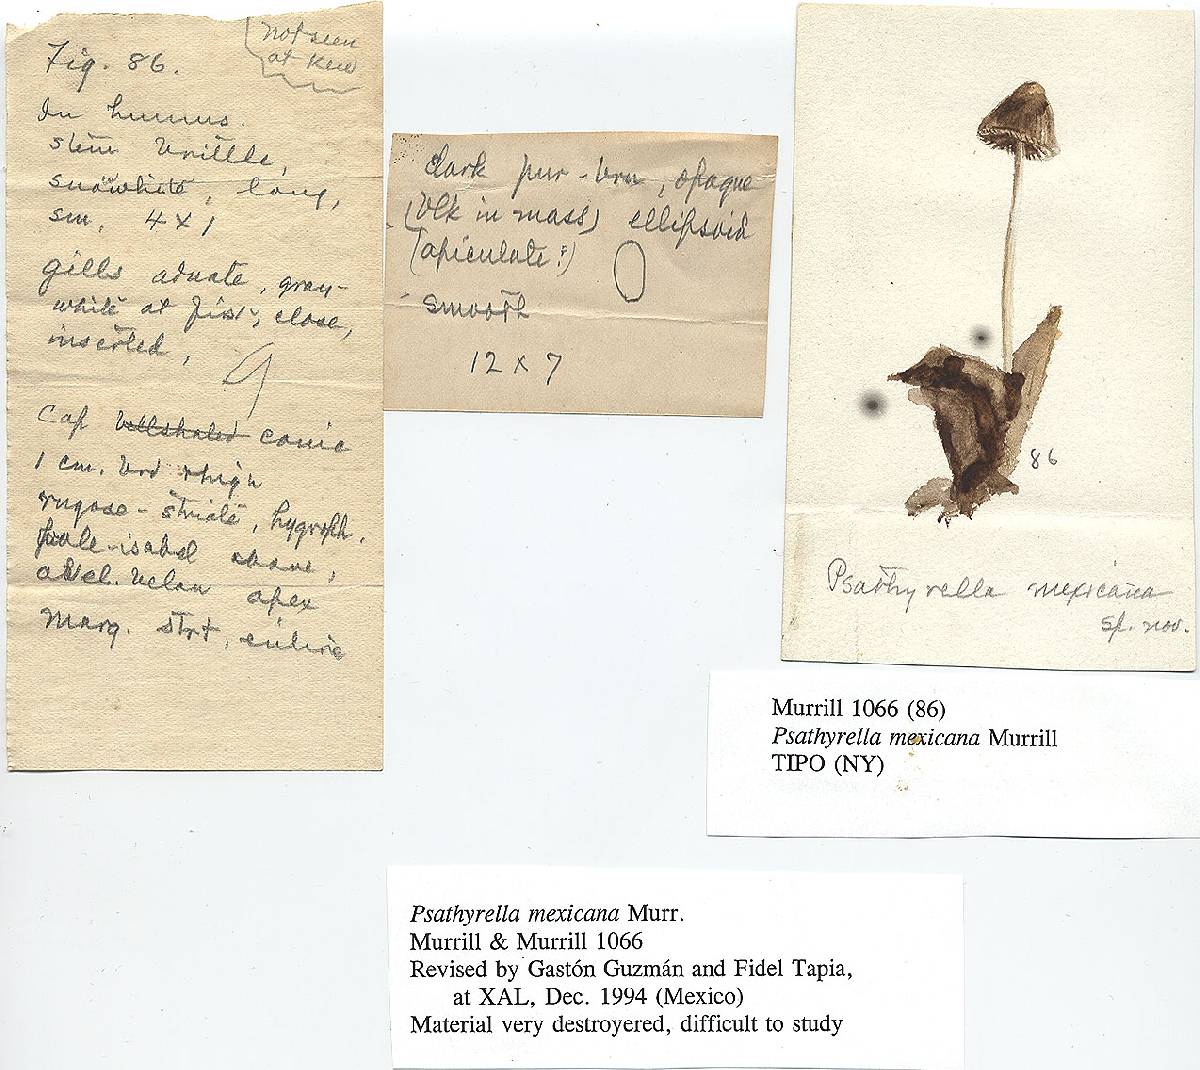 Not seen
at Kew
Fig. 86.
In humus.
stem brittle,
snowhite, long,
sm, 4 x 1
gills adnate, gray-
white at first, close,
inserted,
Cap bellshaped conic
1 cm. brd & high
rugose-striate, hygroph.
pale-isabel above,
avel. below apex
Marg. strt, entire
dark pur-brn, opaque
(blk in mass) ellipsoid
(apiculate?)
smooth
12 x 7
86
Psathyrella mexicana
sp. nov.
Murrill 1066 (86)
Psathyrella mexicana Murrill
TIPO (NY)
Psathyrella mexicana Murr.
Murrill & Murrill 1066
Revised by Gastón Guzmán and Fidel Tapia,
at XAL, Dec. 1994 (Mexico)
Material very destroyered, difficult to study